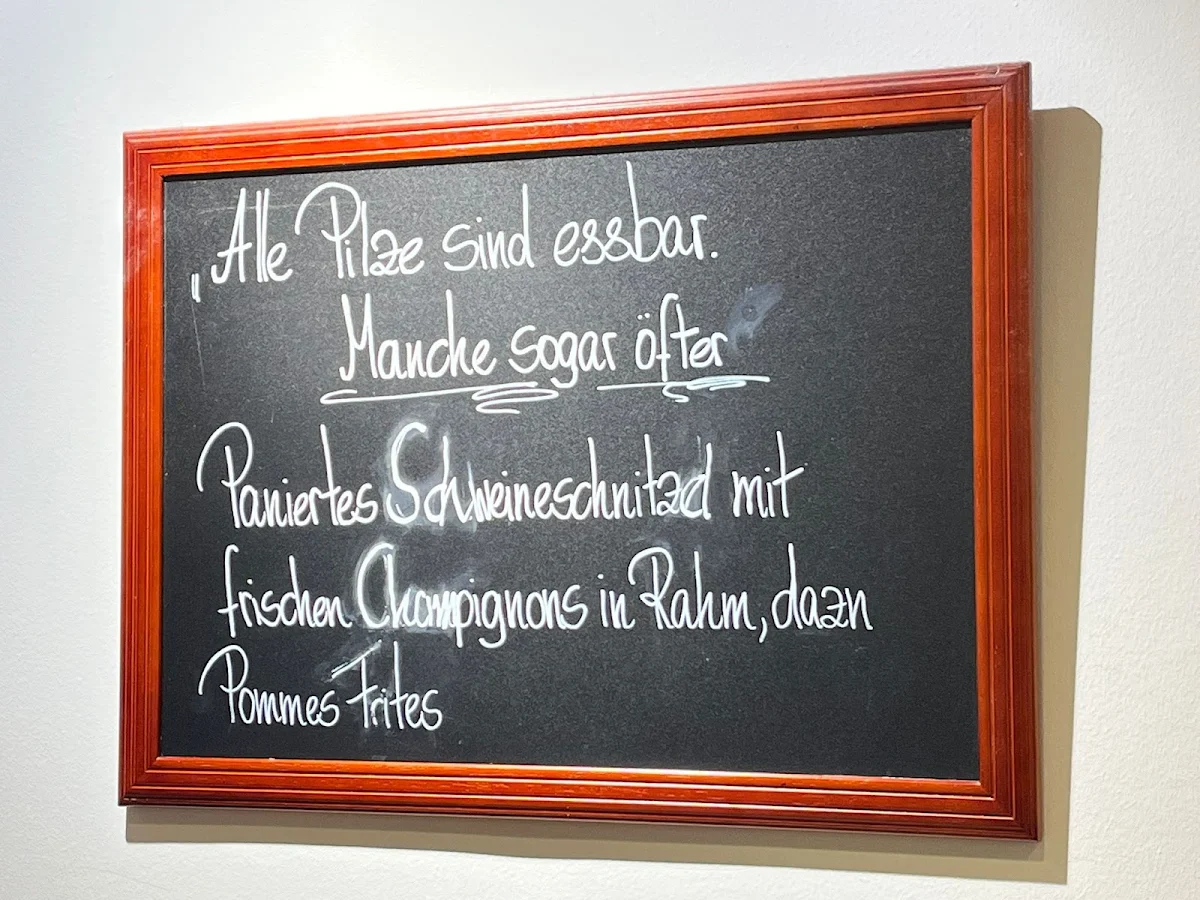 „Alle Pilze sind essbar.
Manche sogar öfter
Paniertes Schweineschnitzel mit
frischen Champignons in Rahm, dazu
Pommes Frites